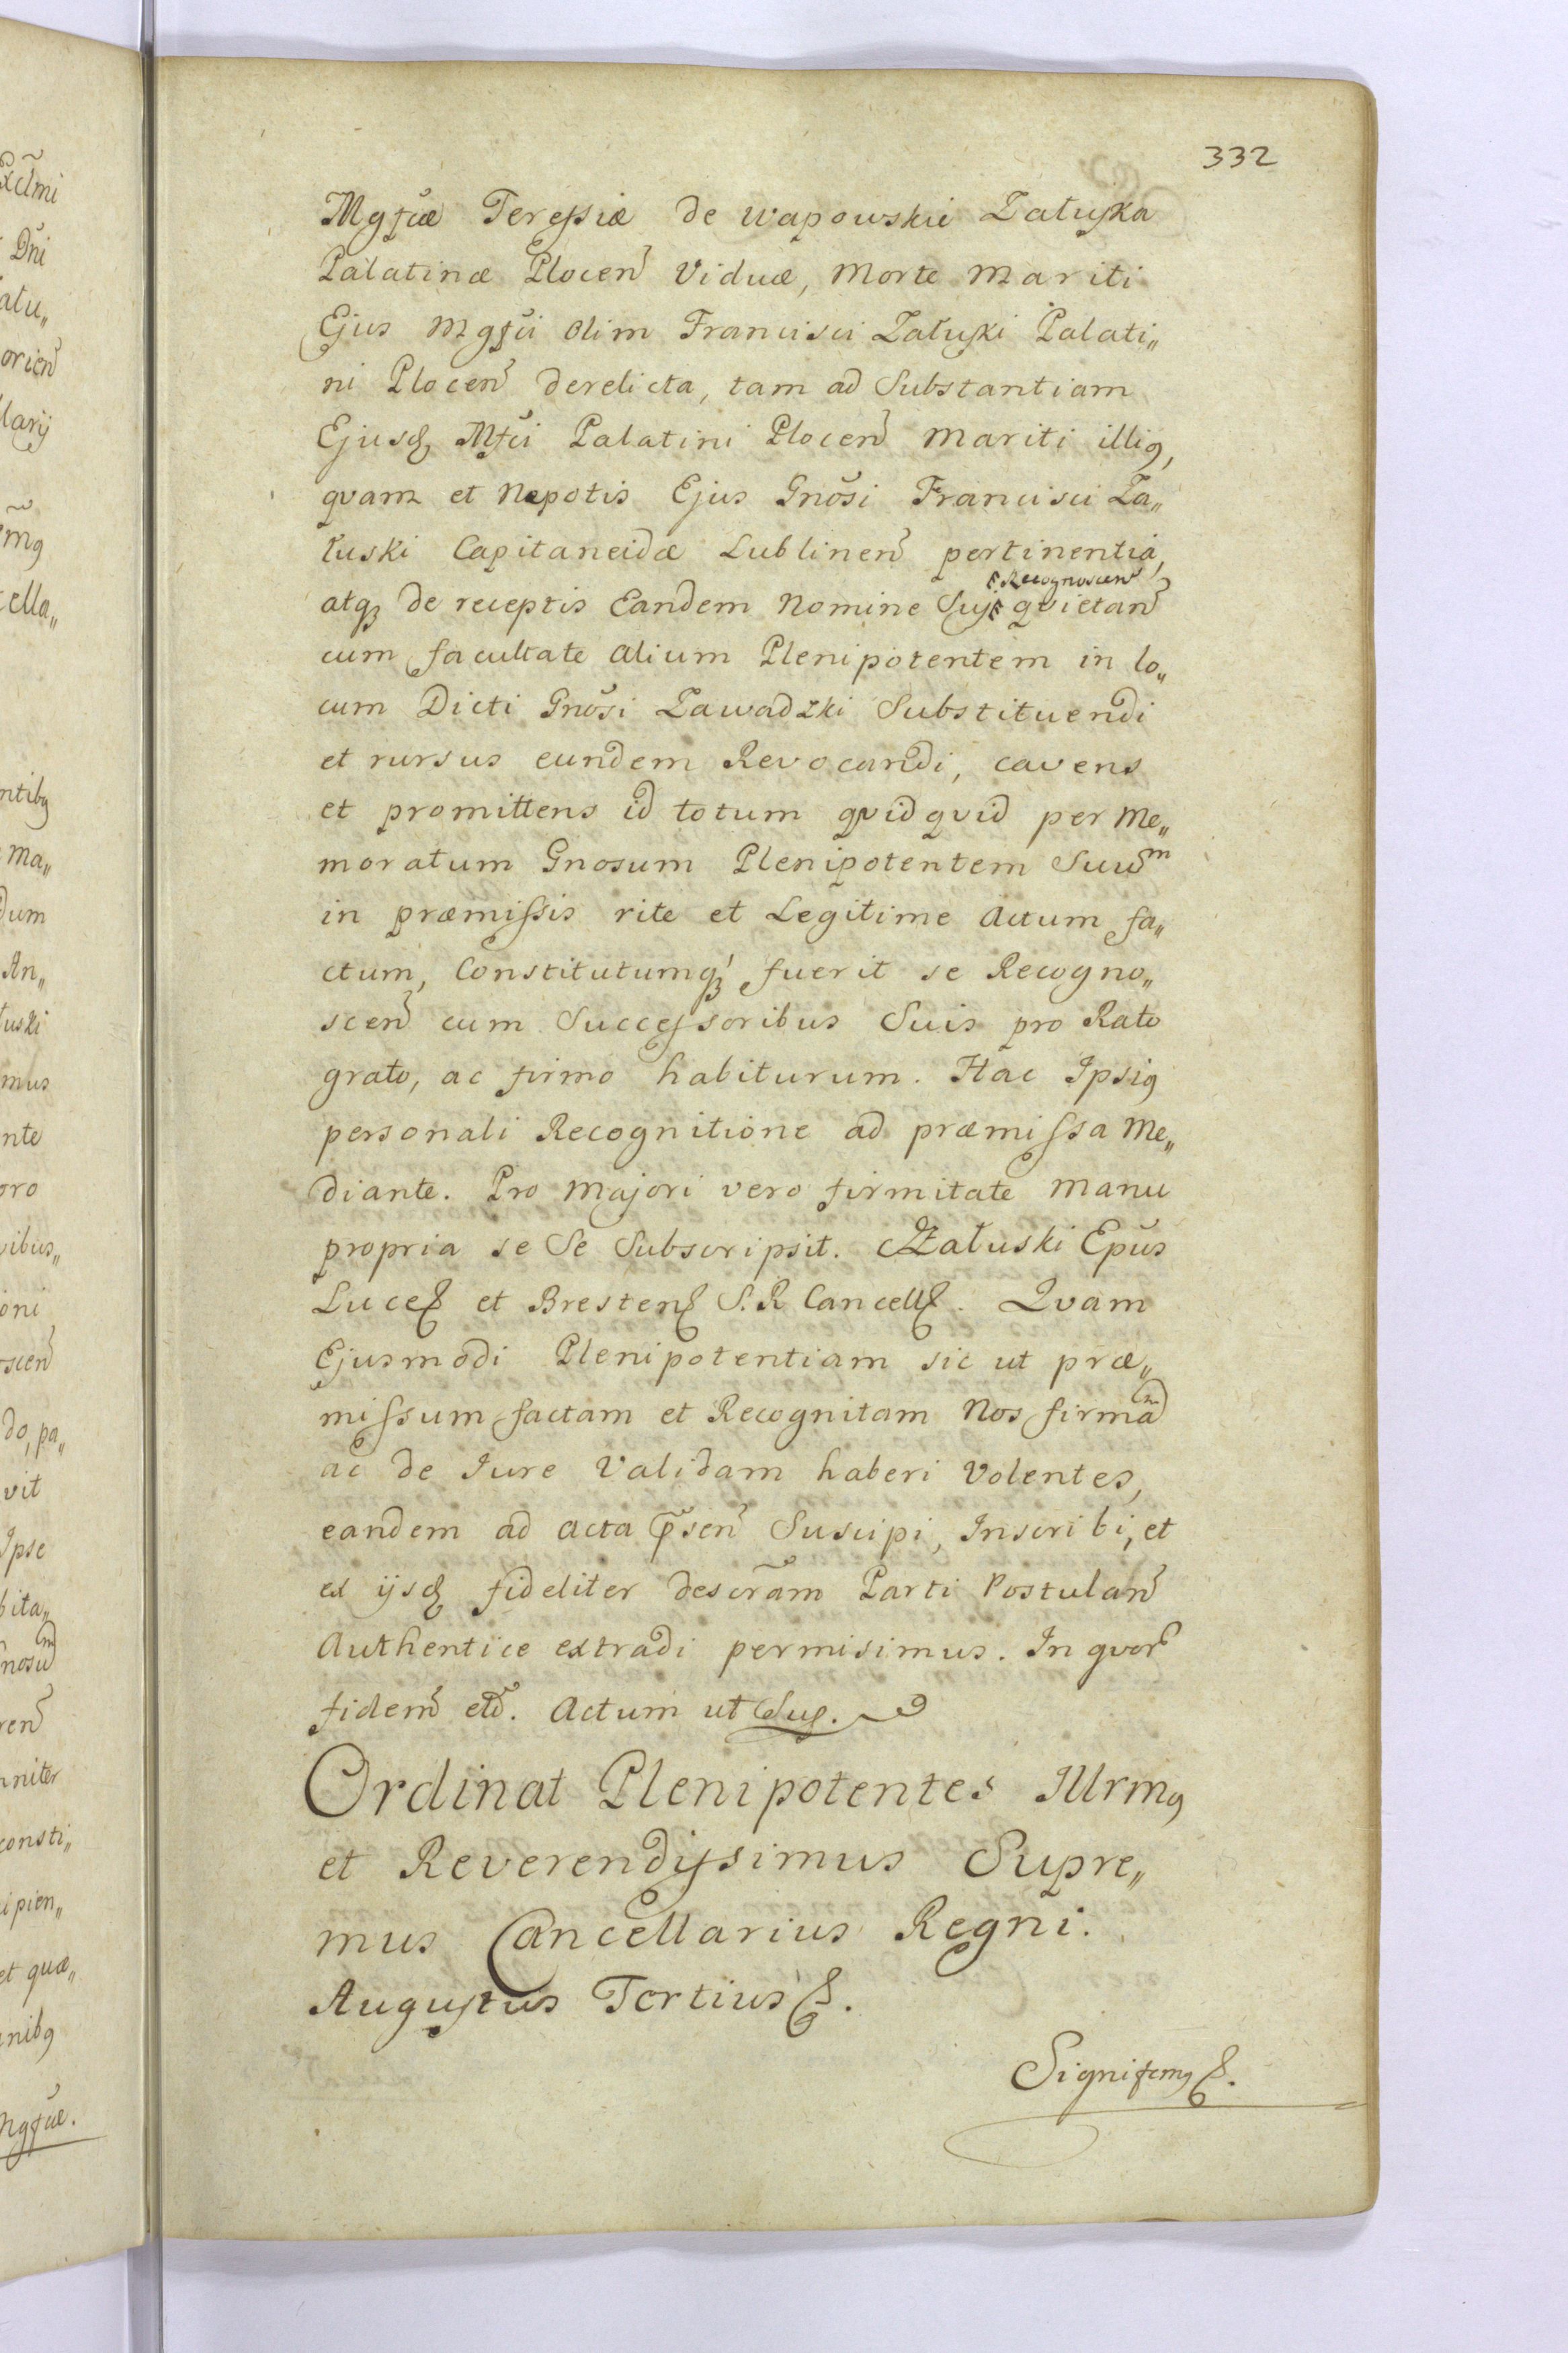 332
Mgfcæ Teressiæ de Wapowskie Załuska
Palatinæ Plocen̄ Viduæ, Morte Mariti
Ejus Mgfci olim Francisci Załuski Palati„
ni Plocen̄ derelicta, tam ad Substantiam
Ejusd Mfci Palatini Plocen̄ Mariti illig,
qvam et Nepotis Ejus Gnosi Francisci Za„
łuski Capitaneidæ Lublinen̄ pertinentia,
Recognoscen̄
atq de receptis Eandem Nomine Suj qvietan̄
cum facultate alium Plenipotentem in lo„
cum Dicti Gnosi Zawadzki Substituendi
et rursus eundem Revocandi, cavens
et promittens id totum qvidqvid per Me„
moratum Gnosum Plenipotentem Suum
in præmissis rite et Legitime Actum fa„
ctum, Constitutumq fuerit se Recogno„
scen̄ cum Successoribus Suis pro Rato
grato, ac firmo habiturum. Hac Ipsig
personali Recognitione ad præmissa Me„
diante. Pro Majori vero firmitate Manu
propria se Se Subscripsit. AZałuski Epūs
Luce et Bresten S.R Cancell. Qvam
Ejusmodi Plenipotentiam sic ut præ„
missum factam et Recognitam Nos firmam
ac de Jure Validam haberi Volentes,
eandem ad Acta p̄sen̄ Suscipi, Inscribi, et
ex ijsd fideliter descrām Parti Postulan̄
Authentice extradi permisimus. In qvor
fidem etc̄. Actum ut Sup.
Ordinat Plenipotentes Illrmg
et Reverendissimus Supre„
mus Cancellarius Regni.
Augustus Tertius &.
Significamg &.